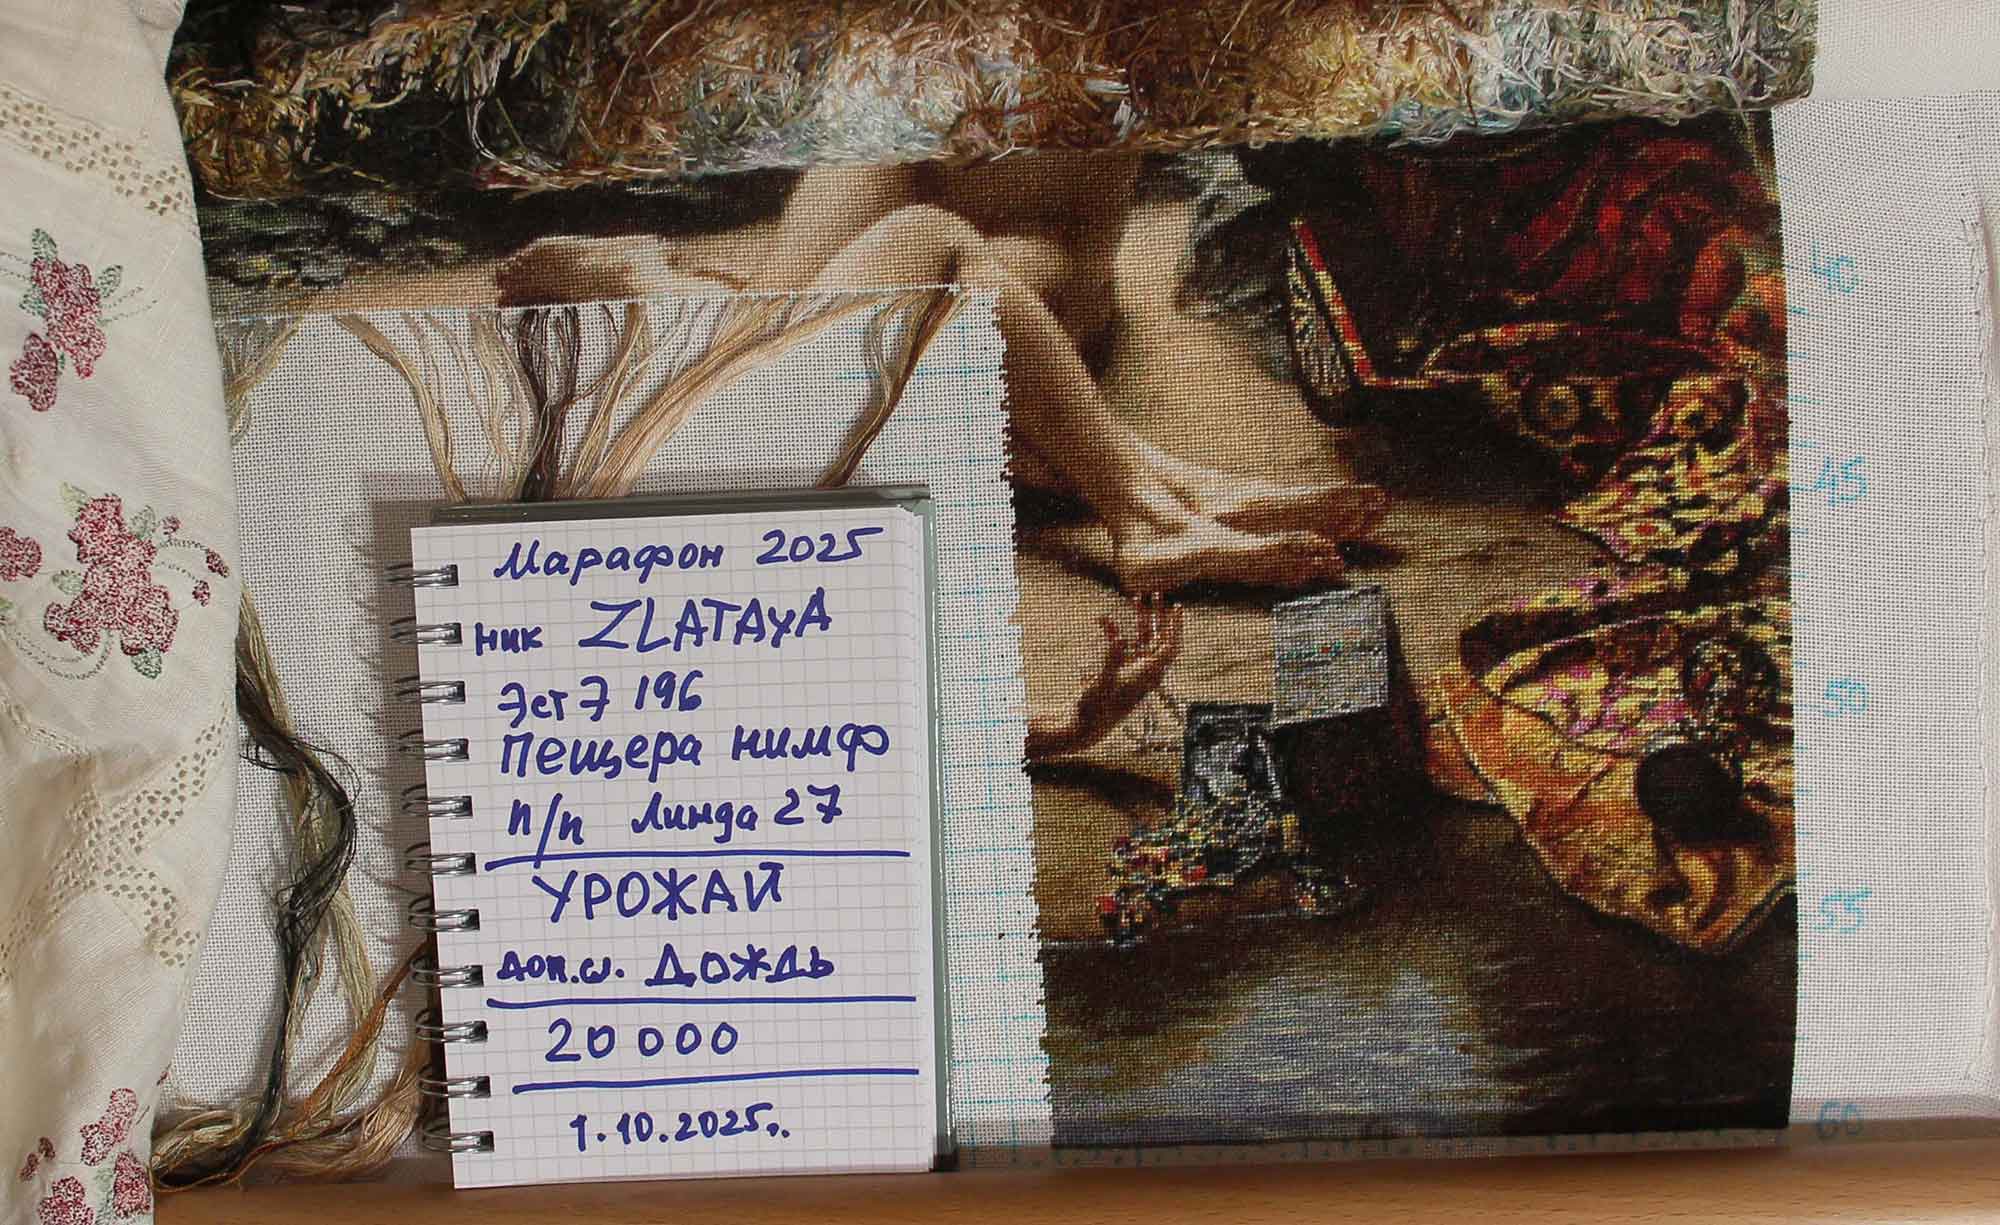 Марафон 2025
ник ZLATAYA
ЭстЭ 196
Пещера нимф
п/п Линда 27
УРОЖАЙ
доп.ш. Дождь
20 000
1.10.2025г.
40
45
50
55
60